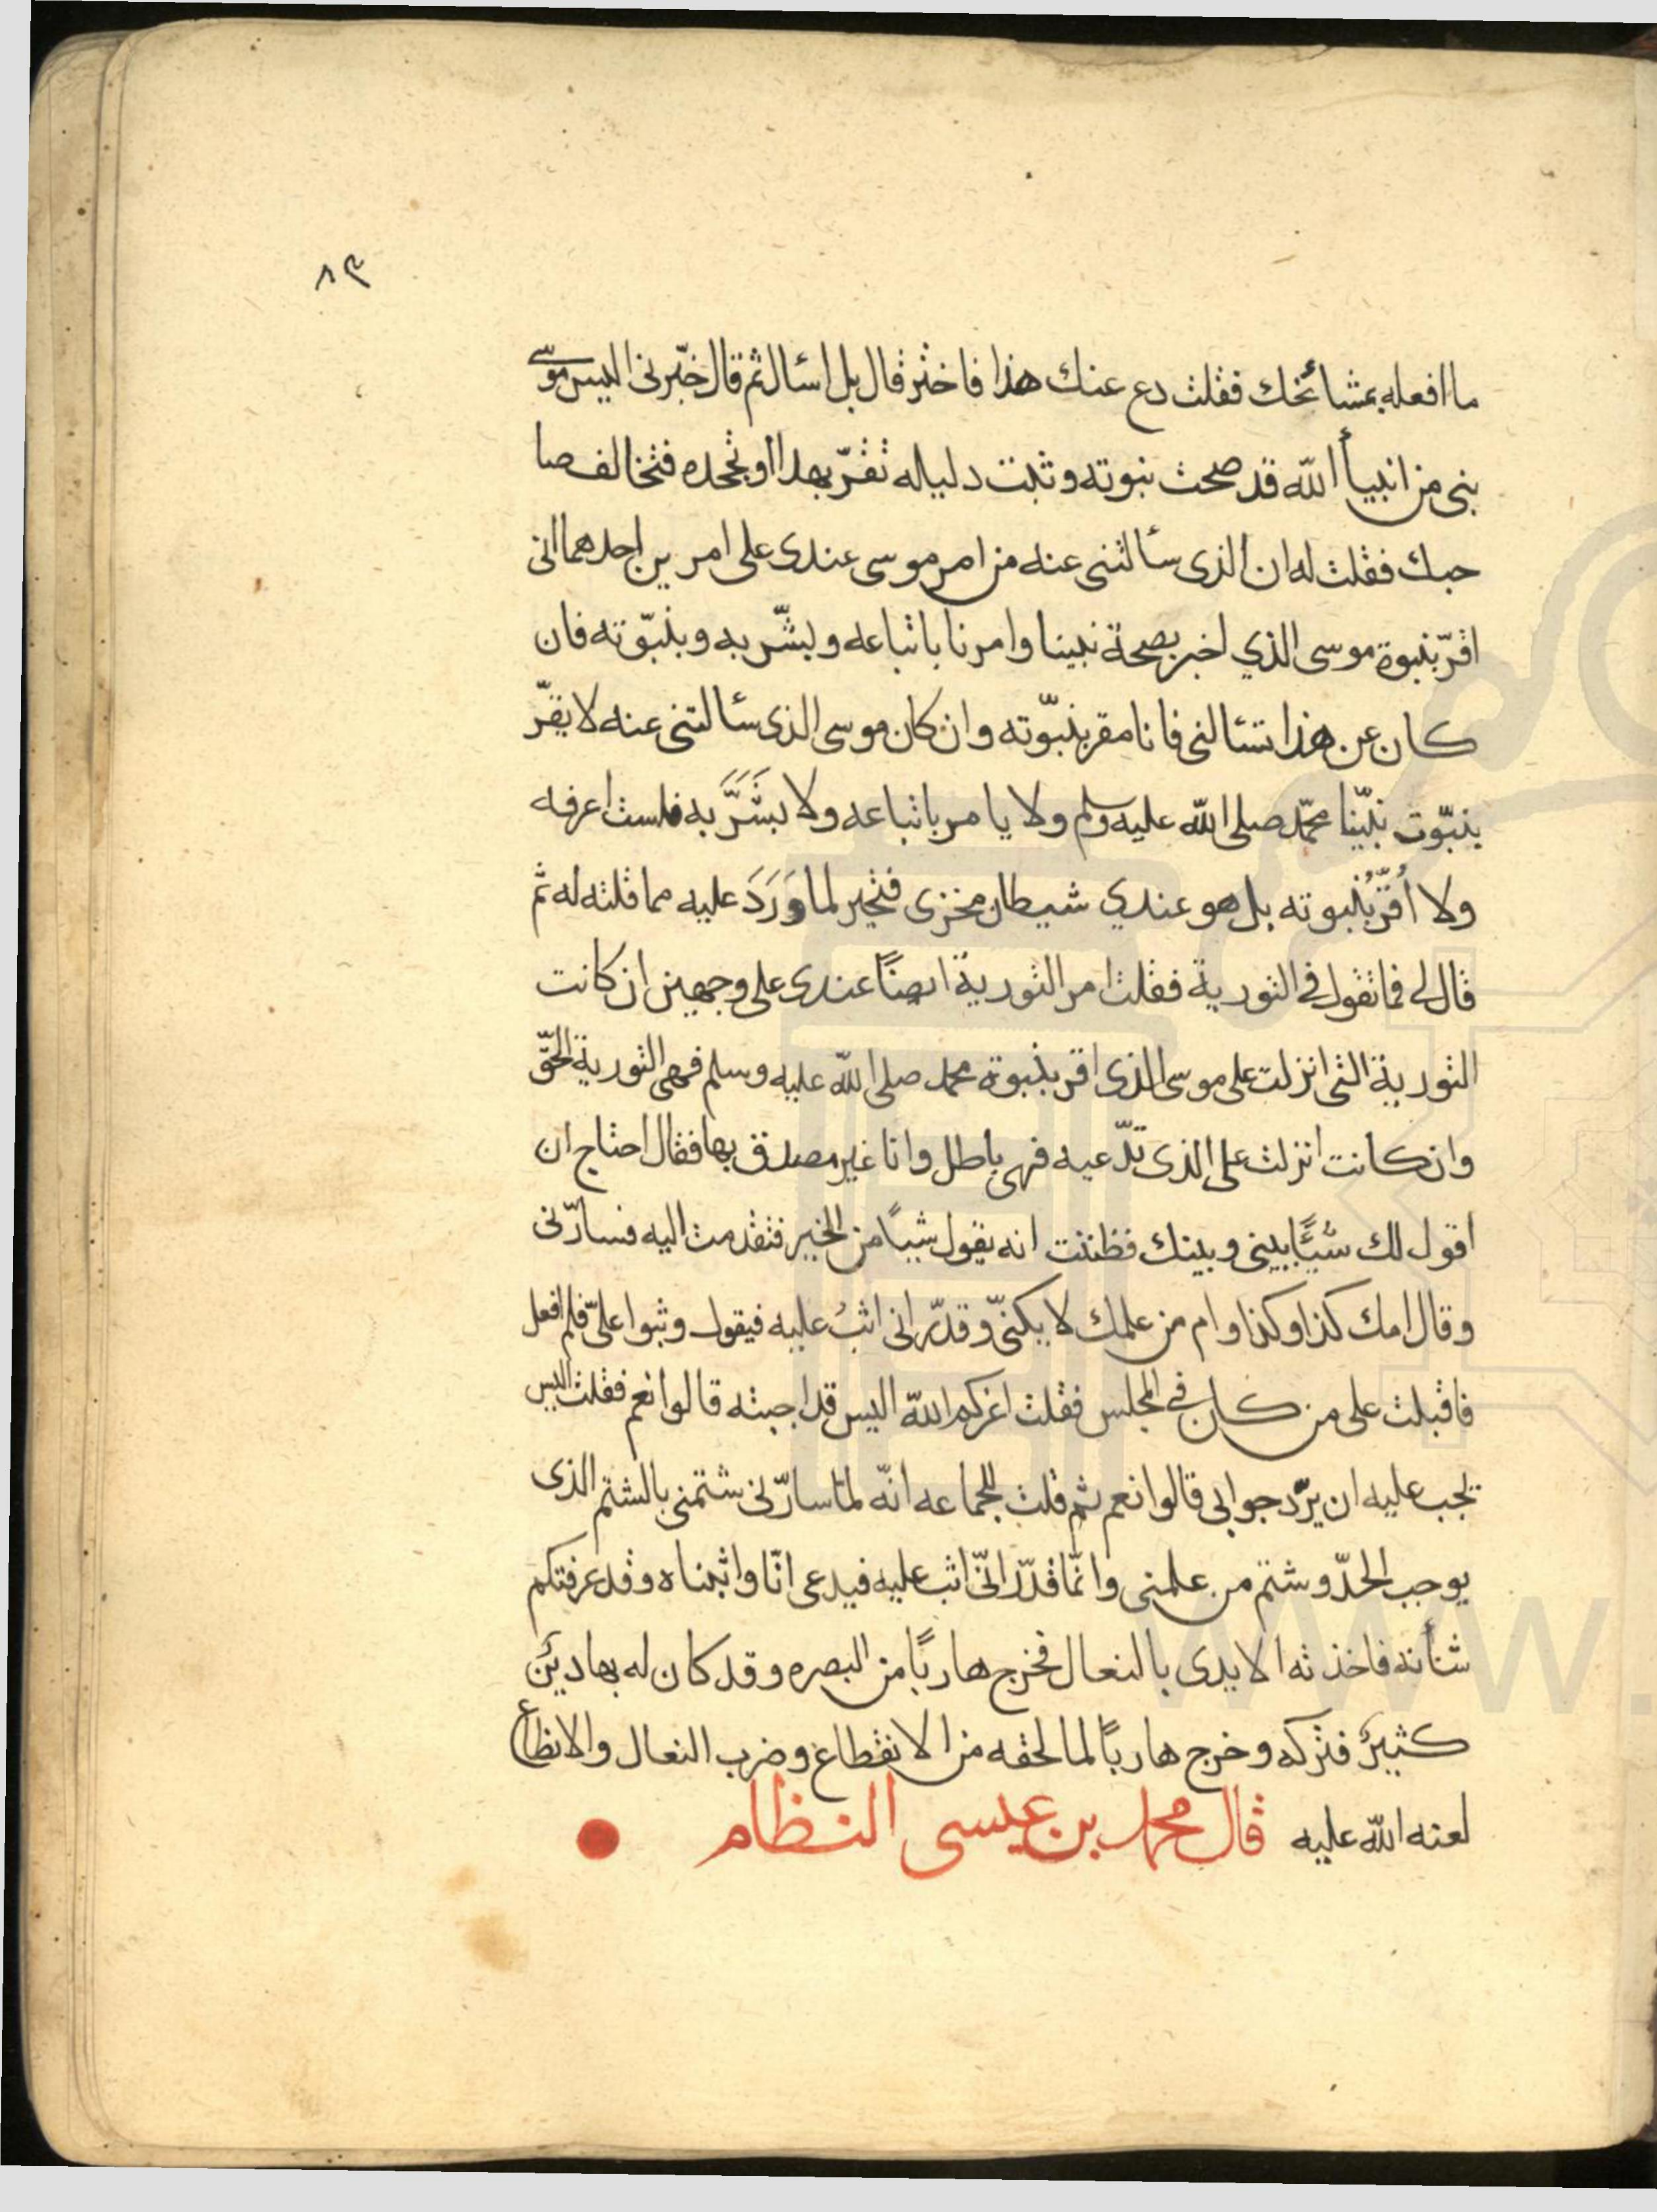 ٨٣
ما افعله بمشائخك فقلت دع عنك هذا فاختر قال بل اسئال ثم قال خبّرنى اليس موسى
نبى من انبيأ الله قد صحت نبوته وثبت دليله تقرّ بهدا او تجحده فتخالف صا
حبك فقلت له ان الذى سئالتنى عنه من امر موسى عندى على امرين احدهما انى
اقرّ بنبوة موسى الذي اخبر بصحة نبينا وامرنا باتباعه وبشّر به وبنبّوته فان
كان عن هذا تسئالنى فانا مقر بنبّوته وان كان موسى الذى سئالتنى عنه لا يقّر
بنبّوت نبّينا محمّد صلى الله عليه وسلم ولا يامر باتباعه ولا بَشَّرَ به فلست اعرفه
ولا اُقرُّ بنبوته بل هو عندي شيطان مخزى فتحير لما وَرَدَ عليه مما قلته له ثم
قال لى فما تقول فى التورية فقلت امر التورية ايضًا عندى على وجهين ان كانت
التورية التى انزلت على موسى الذى اقر بنبوة محمد صلى الله عليه وسلم فهى التورية الحّق
وان كانت انزلت على الذى تدّعيه فهى باطل وانا غير مصدق بها فقال احتاج ان
اقول لك شيًا بينى وبينك فظننت انه يقول شيًا من الخير فتقدمت اليه فسارّنى
وقال امك كذا وكذا وام من علمك لا يكنّى وقدّر انى اثبُ عليه فيقول وثبوا علىّ فلم افعل
فاقبلت على من كان فى المجلس فقلت اعزكم الله اليس قد اجبته قالوا نعم فقلت اليس
يجب عليه ان يرّد جوابى قالوا نعم ثم قلت للجماعه انّه لمّا سارّنى شتمنى بالشتم الذى
يوجب الحدّ وشتم من علمنى وانّما قدّر انّى اثب عليه فيدعى انّا واثبناه وقد عرفتكم
شأنه فاخذته الايدى بالنعال فخرج هاربًا من البصره وقد كان له بها دين
كثير فتركه وخرج هاربًا لما لحقه من الانقطاع وضرب النعال والانظاع
لعنه الله عليه قال محمد بن عيسى النظام
www.